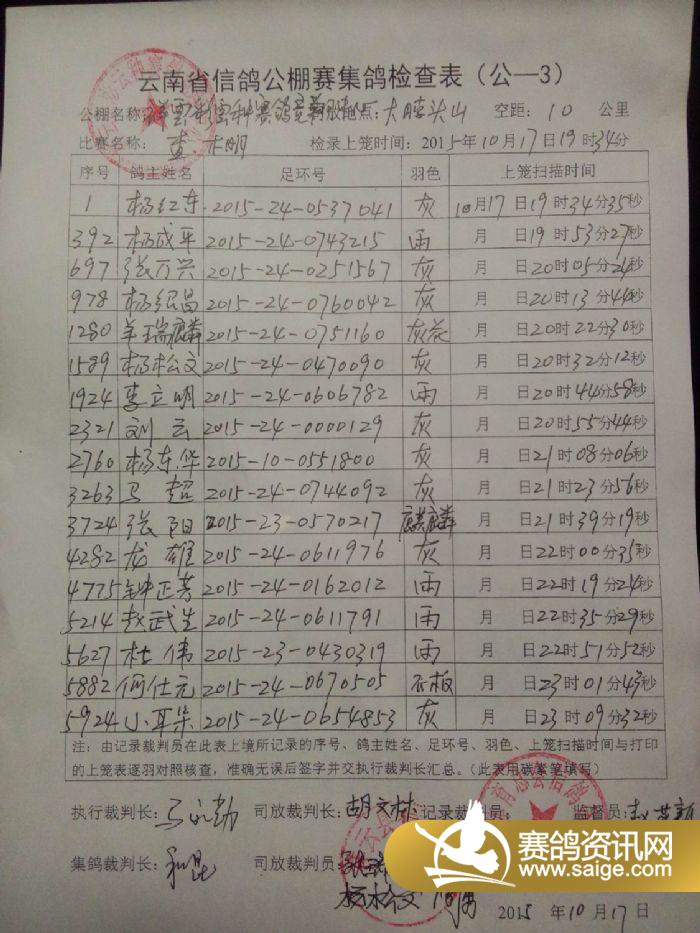 云南省信鸽公棚赛集鸽检查表（公—3）
公棚名称： 点：大 头山 空距：10 公里
比赛名称： 查 检录上笼时间：2015年10月17日19时34分
序号 鸽主姓名 足环号 羽色 上笼扫描时间
1 杨红东 2015-24-0537041 灰 10月17日19时34分35秒
392 杨成平 2015-24-0743215 雨 月 日19时53分27秒
697 张万兴 2015-24-0251567 灰 月 日20时05分24秒
978 杨绍昌 2015-24-0760042 灰 月 日20时13分44秒
1280 羊瑞麟 2015-24-0751160 灰花 月 日20时22分30秒
1589 杨松文 2015-24-0470090 灰 月 日20时32分12秒
1924 李立明 2015-24-0606782 雨 月 日20时44分58秒
2321 刘云 2015-24-0000129 灰 月 日20时55分44秒
2760 杨东华 2015-10-0551800 灰 月 日21时08分06秒
3263 马超 2015-24-0744092 灰 月 日21时23分56秒
3724 张阳 2015-23-0570217 麒麟 月 日21时39分19秒
4282 龙雄 2015-24-0611976 灰 月 日22时00分35秒
4775 钟正芳 2015-24-0162012 雨 月 日22时19分24秒
5214 赵武生 2015-24-0611791 雨 月 日22时35分29秒
5627 杜伟 2015-23-0430319 雨 月 日22时51分52秒
5882 何仕元 2015-24-0670505 石板 月 日23时01分43秒
5924 小耳朵 2015-24-0654853 灰 月 日23时09分32秒
注：由记录裁判员在此表上境所记录的序号、鸽主姓名、足环号、羽色、上笼扫描时间与打印
的上笼表逐羽对照核查，准确无误后签字并交执行裁判长汇总。（此表用碳素笔填写）
执行裁判长： 司放裁判长：胡文林 记录裁判员： 监督员：
集鸽裁判长：和昆 司放裁判员：
赛鸽资讯网
www.saige.com
2015 年10月17日